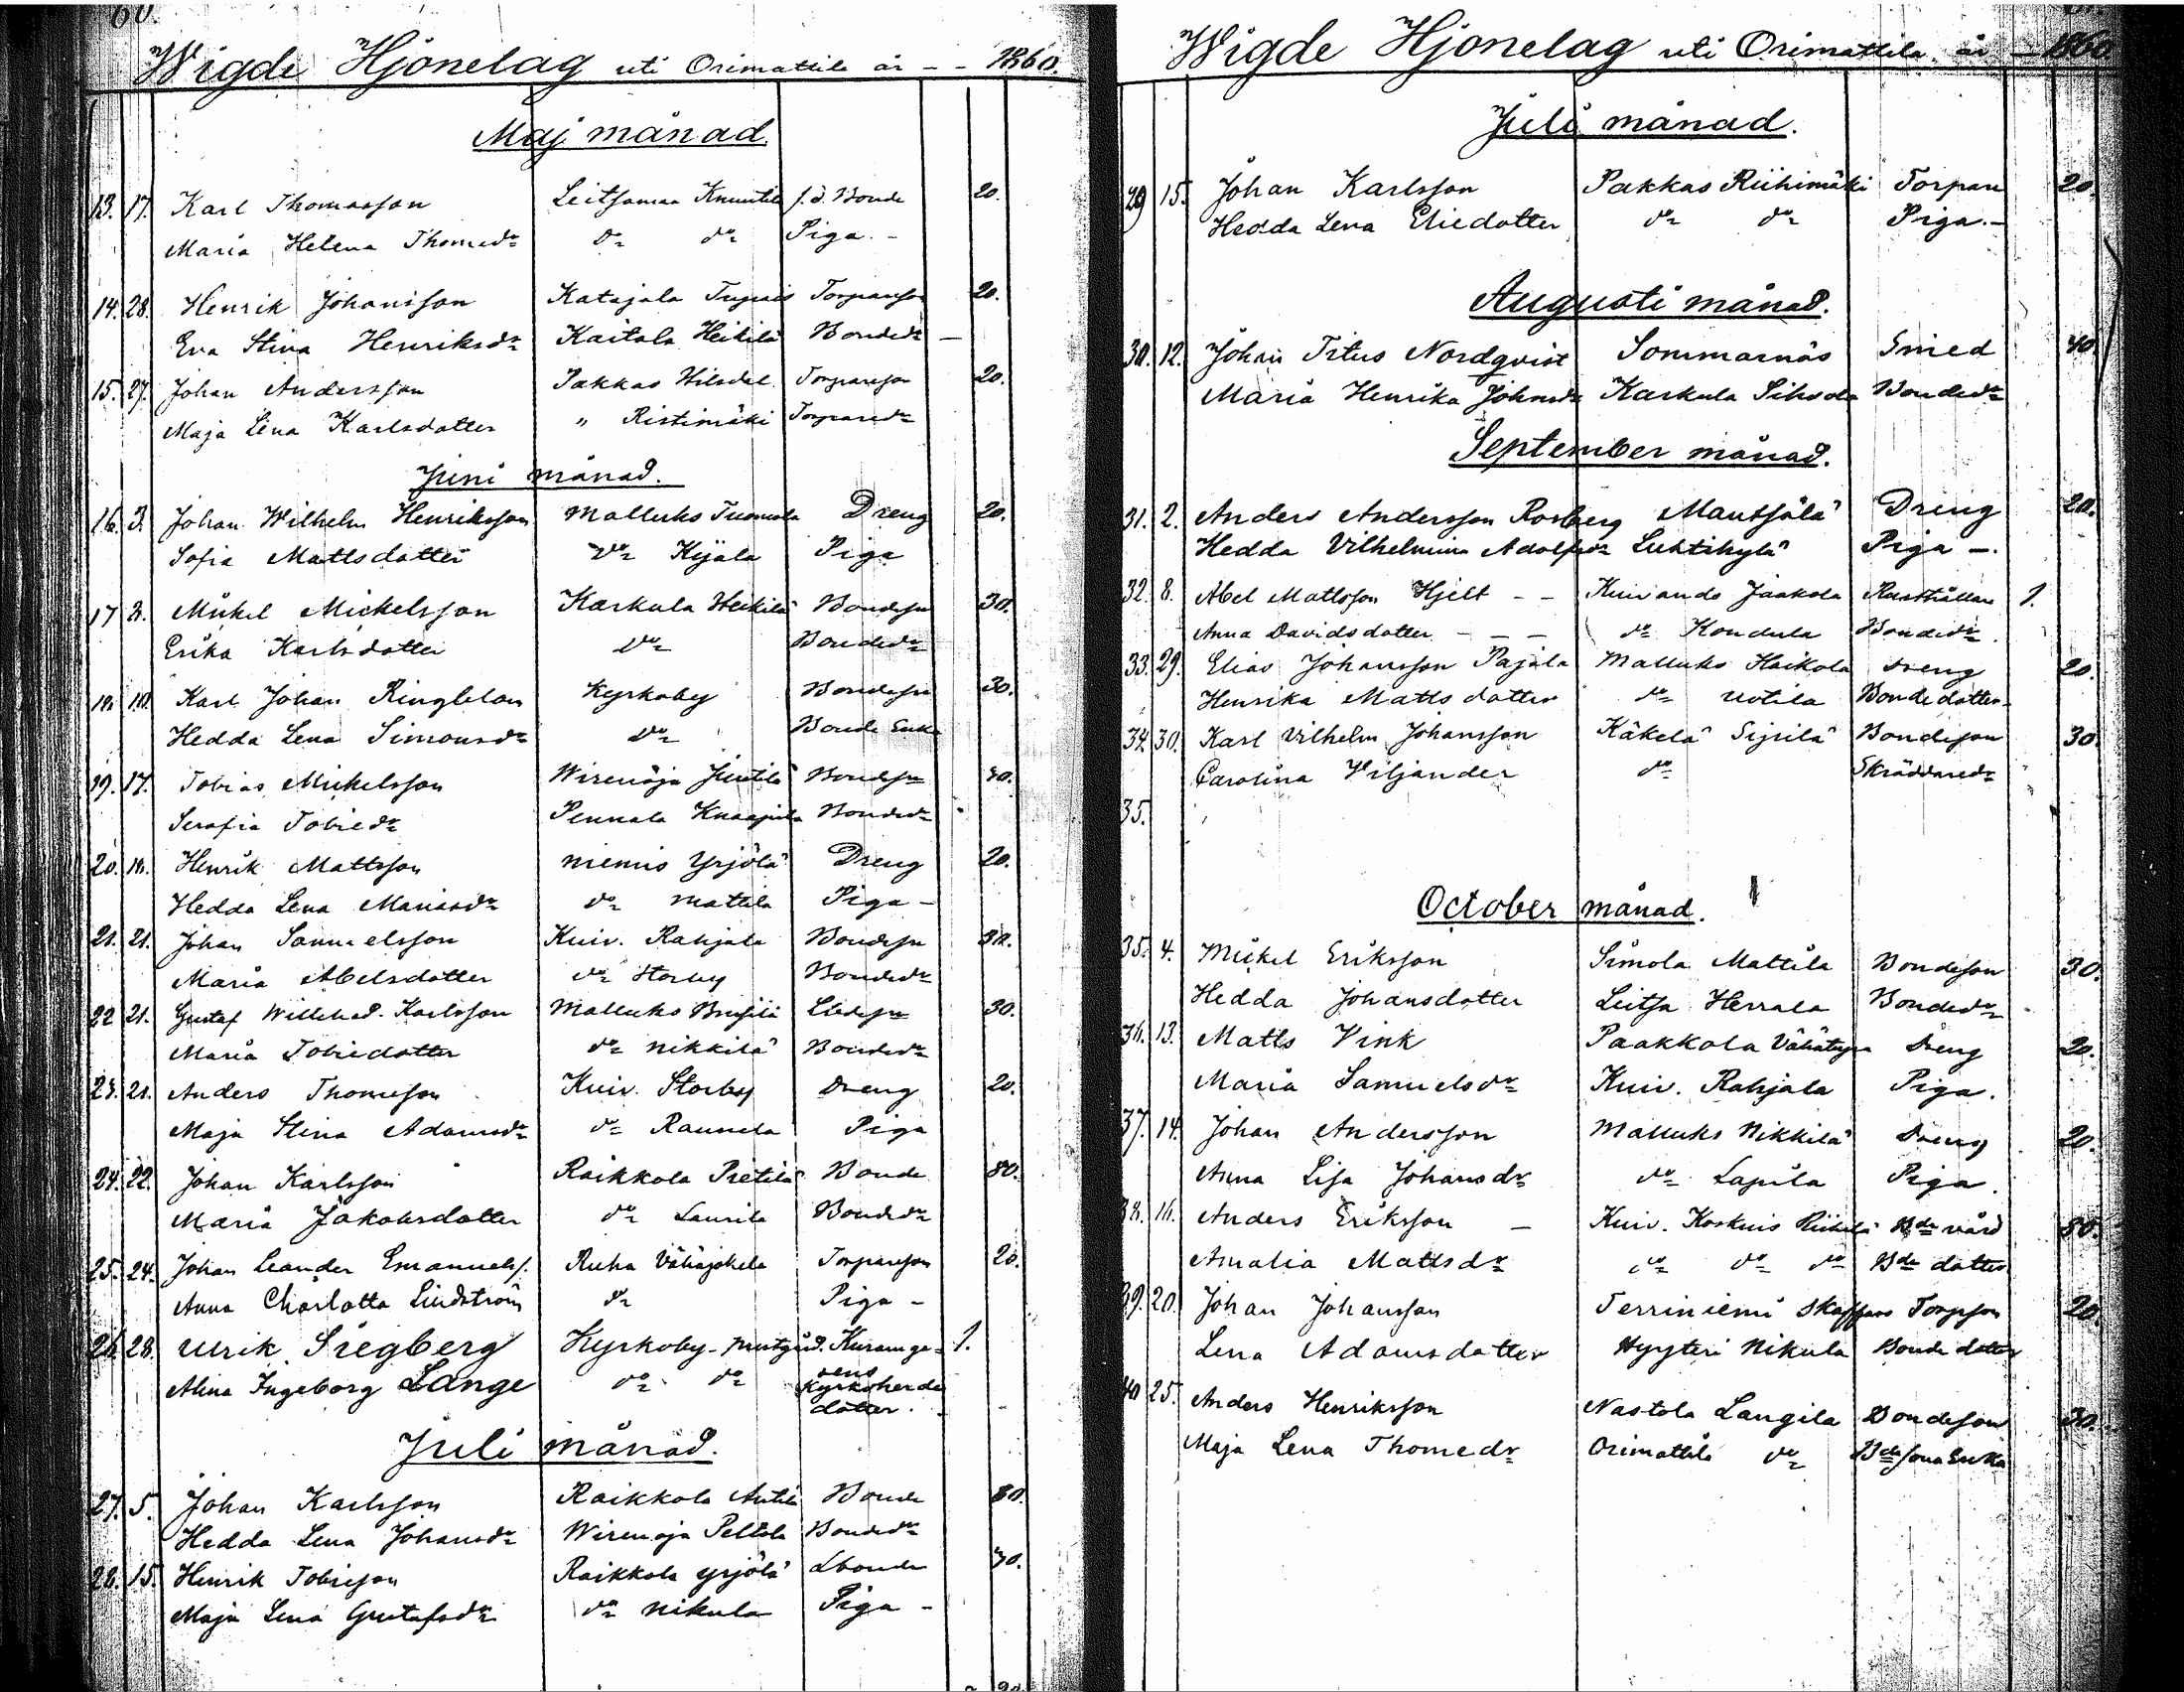 60.
Wigde Hjonelag uti Orimattila år - - 1860.
Maj månad.
13. 17. Karl Thomasson Leitsamaa Knuutila f.d. Bonde 20.
Maria Helena Thomedr do do Piga -
14. 28. Henrik Johansson Katajala Torparson 20.
Eva Stina Henriksdr Kaitala Heikilä Bondedr -
15. 27. Johan Andersson Pakkas Torpareson 20.
Maja Lena Karlsdotter " Ristimäki Torparedr
Juni månad.
16. 3. Johan Wilhelm Henriksson Mallusko Tuomola Dreng 20.
Sofia Mattsdotter do Kyala Piga
17 3. Mickel Mickelsson Karkula Heikilä Bondeson 30.
Erika Karlsdotter do Bondedr
18. 10. Karl Johan Ringblom Kyrkoby Bondeson 30.
Hedda Lena Simonsdr do Bonde Enka
19. 17. Tobias Mickelsson Wirenoja Juutila Bondeson 30.
Serafia Tobiedr Pennala Knaapila Bondedr
20. 18. Henrik Mattsson Niemis Yrjölä Dreng 20.
Hedda Lena Mariasdr do Mattila Piga -
21. 21. Johan Samuelsson Kuiv. Rahjala Bondeson 30.
Maria Abelsdotter do Storby Bondedr
22 21. Gustaf Willehad. Karlsson Mallusko 30.
Maria Tobiedotter do Nikkilä Bondedr
23. 21. Anders Thomeson Kuiv. Storby Dreng 20.
Maja Stina Adamsdr do Raunela Piga
24. 22. Johan Karlsson Raikkola Pietilä Bonde 80.
Maria Jakobsdotter do Laurila Bondedr
25. 24. Johan Leander Emanuels. Ruha Vähäjokela Torpareson 20.
Anna Charlotta Lindström do Piga -
26. 28. Ulrik Siegberg Kyrkoby - prestgård. 1.
Alina Ingeborg Lange do do Kyrkoherde
dotter.
Juli månad.
27. 5. Johan Karlsson Raikkola Anttila Bonde 80.
Hedda Lena Johansdr Wirenoja Peltola Bondedr
28. 15. Henrik Tobieson Raikkola Yrjölä Lbonde 30.
Maja Lena Gustafsdr do Nikula Piga -
Wigde Hjonelag uti Orimattila år - 1860
Juli månad.
29 15. Johan Karlsson Pakkas Riihimäki Torpare 20.
Hedda Lena Eliedotter do do Piga. -
Augusti månad.
30. 12. Johan Titus Nordqvist Sommarnäs Smed 40.
Maria Henrika Johansdr Karkula Sihvola Bondedr
September månad.
31. 2. Anders Andersson Rosberg Mantsälä Dreng 20.
Hedda Vilhelmina Adolfsdr Luhtikylä Piga -.
32. 8. Abel Mattsson Hjelt - - Kuivando Jaakola Rusthållare 1.
Anna Davidsdotter - - - do Kondula Bondedr.
33. 29. Elias Johansson Pajala Mallusko Haikola Dreng 20.
Henrika Mattsdotter do Uotila Bonde dotter
34. 30. Karl Vilhelm Johansson Käkelä Sipilä Bondeson 30.
Carolina Viljander do Skräddaredr
35.
October månad.
35. 4. Mickel Eriksson Simola Mattila Bondeson 30.
Hedda Johansdotter Leitsa Herrala Bondedr
36. 13. Matts Vink Paakkola Dreng 20.
Maria Samuelsdr Kuiv. Rahjala Piga.
37. 14. Johan Andersson Mallusko Nikkilä Dreng 20.
Anna Lisa Johansdr do Lapila Piga.
38. 16. Anders Eriksson - Kuiv. Koskuis 80.
Amalia Mattsdr do do do Bde dotter
39. 20. Johan Johansson Terriniemi Torpson 20.
Lena Adamsdotter Hyyteri Nikula Bonde dotter
40 25. Anders Henriksson Nastola Langila Bondeson 30.
Maja Lena Thomedr Orimattila do Bdesona Enka